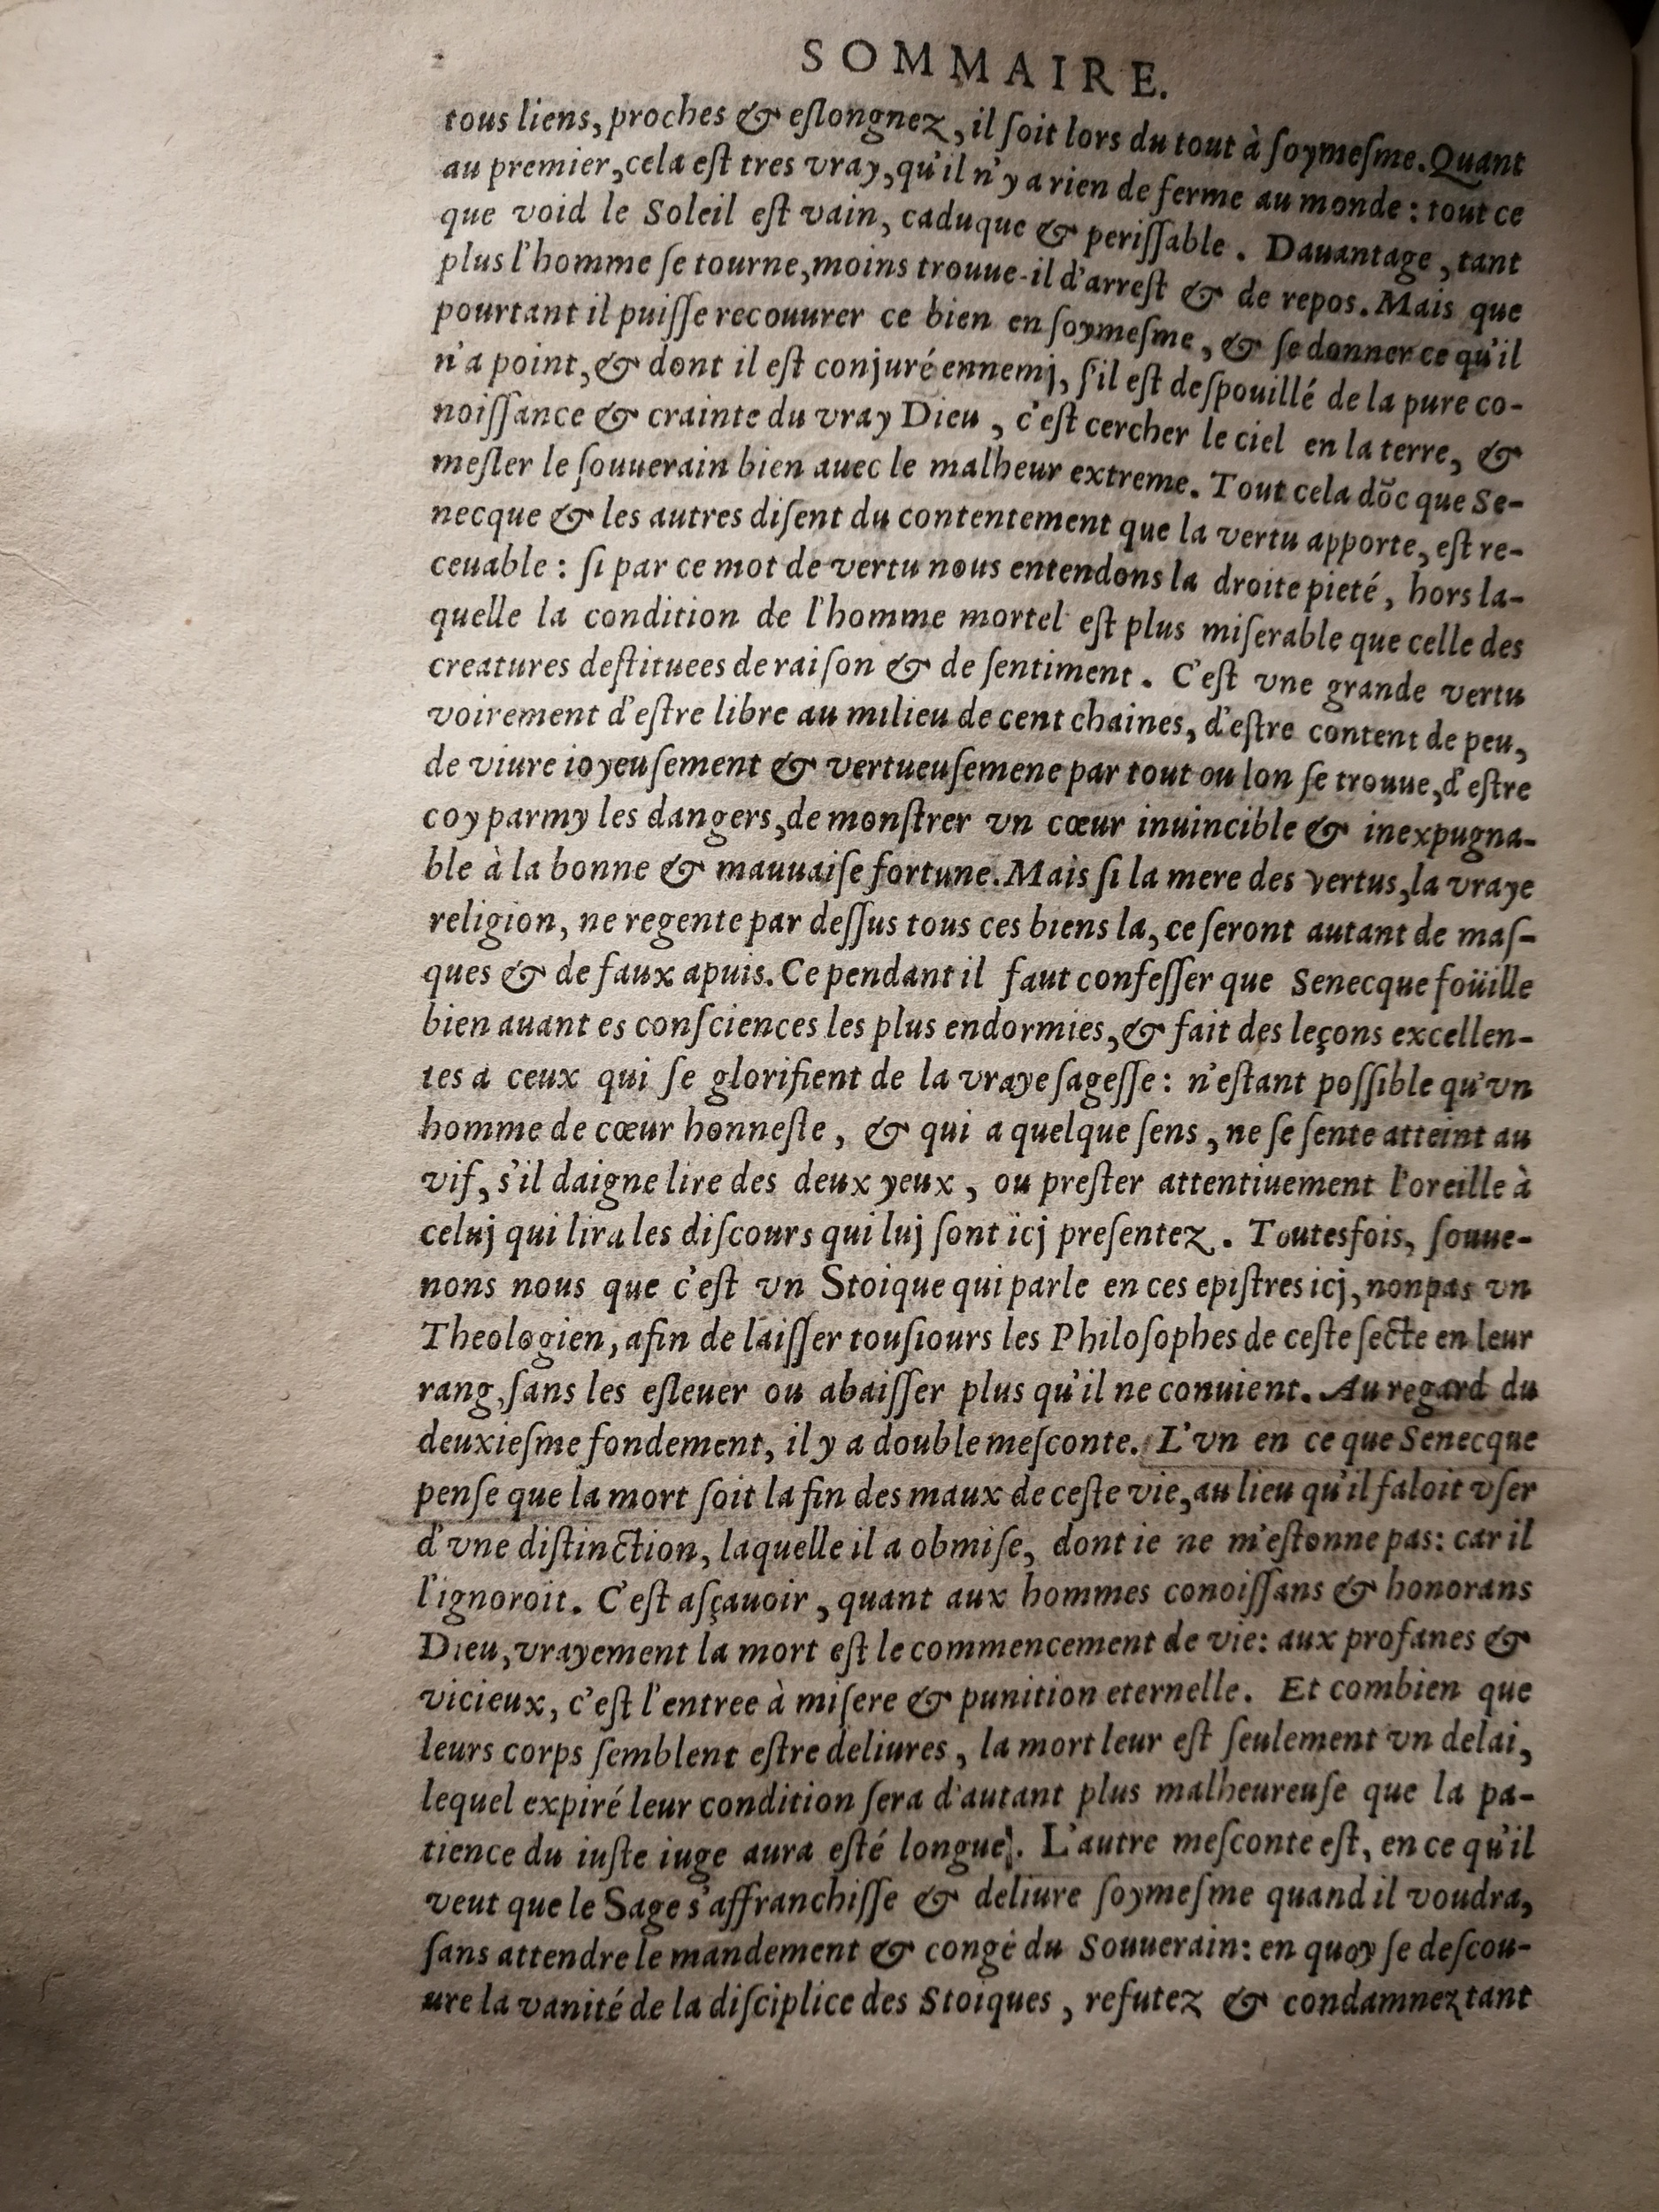 SOMMAIRE.
tous liens, proches & eſlongnez, il ſoit lors du tout à ſoymeſme. Quant
au premier, cela eſt tres vray, qu'il n'y a rien de ferme au monde : tout ce
que void le Soleil eſt vain, caduque & periſſable . Dauantage, tant
plus l'homme ſe tourne, moins trouue-il d'arreſt & de repos. Mais que
pourtant il puiſſe recouurer ce bien en ſoymeſme, & ſe donner ce qu'il
n'a point, & dont il eſt conjuré ennemj, ſ'il eſt deſpouillé de la pure co-
noiſſance & crainte du vray Dieu, c'eſt cercher le ciel en la terre, &
meſler le ſouuerain bien auec le malheur extreme. Tout cela dõc que Se-
necque & les autres diſent du contentement que la vertu apporte, eſt re-
ceuable : ſi par ce mot de vertu nous entendons la droite pieté, hors la-
quelle la condition de l'homme mortel eſt plus miſerable que celle des
creatures deſtituees de raiſon & de ſentiment . C'eſt vne grande vertu
voirement d'eſtre libre au milieu de cent chaines, d'eſtre content de peu,
de viure ioyeuſement & vertueuſemene par tout ou lon ſe trouue, d'eſtre
coy parmy les dangers, de monſtrer vn cœur inuincible & inexpugna-
ble à la bonne & mauuaiſe fortune. Mais ſi la mere des vertus, la vraye
religion, ne regente par deſſus tous ces biens la, ce ſeront autant de maſ-
ques & de faux apuis. Ce pendant il faut confeſſer que Senecque foüille
bien auant es conſciences les plus endormies, & fait des leçons excellen-
tes a ceux qui ſe glorifient de la vraye ſageſſe : n'eſtant poſſible qu'vn
homme de cœur honneſte, & qui a quelque ſens, ne ſe ſente atteint au
vif, s'il daigne lire des deux yeux, ou preſter attentiuement l'oreille à
celuj qui lira les diſcours qui luj ſont icj preſentez. Toutesfois, ſouue-
nons nous que c'eſt vn Stoique qui parle en ces epiſtres icj, nonpas vn
Theologien, afin de laiſſer touſiours les Philoſophes de ceſte ſecte en leur
rang, ſans les eſleuer ou abaiſſer plus qu'il ne conuient. Au regard du
deuxieſme fondement, il y a double meſconte. L'vn en ce que Senecque
penſe que la mort ſoit la fin des maux de ceſte vie, au lieu qu'il faloit vſer
d'vne diſtinction, laquelle il a obmiſe, dont ie ne m'eſtonne pas : car il
l'ignoroit. C'eſt aſçauoir, quant aux hommes conoiſſans & honorans
Dieu, vrayement la mort eſt le commencement de vie : aux profanes &
vicieux, c'eſt l'entree à miſere & punition eternelle. Et combien que
leurs corps ſemblent eſtre deliures, la mort leur eſt ſeulement vn delai,
lequel expiré leur condition ſera d'autant plus malheureuſe que la pa-
tience du iuſte iuge aura eſté longue. L'autre meſconte eſt, en ce qu'il
veut que le Sage s'affranchiſſe & deliure ſoymeſme quand il voudra,
ſans attendre le mandement & congé du Souuerain : en quoy ſe deſcou-
ure la vanité de la diſciplice des Stoiques, refutez & condamnez tant